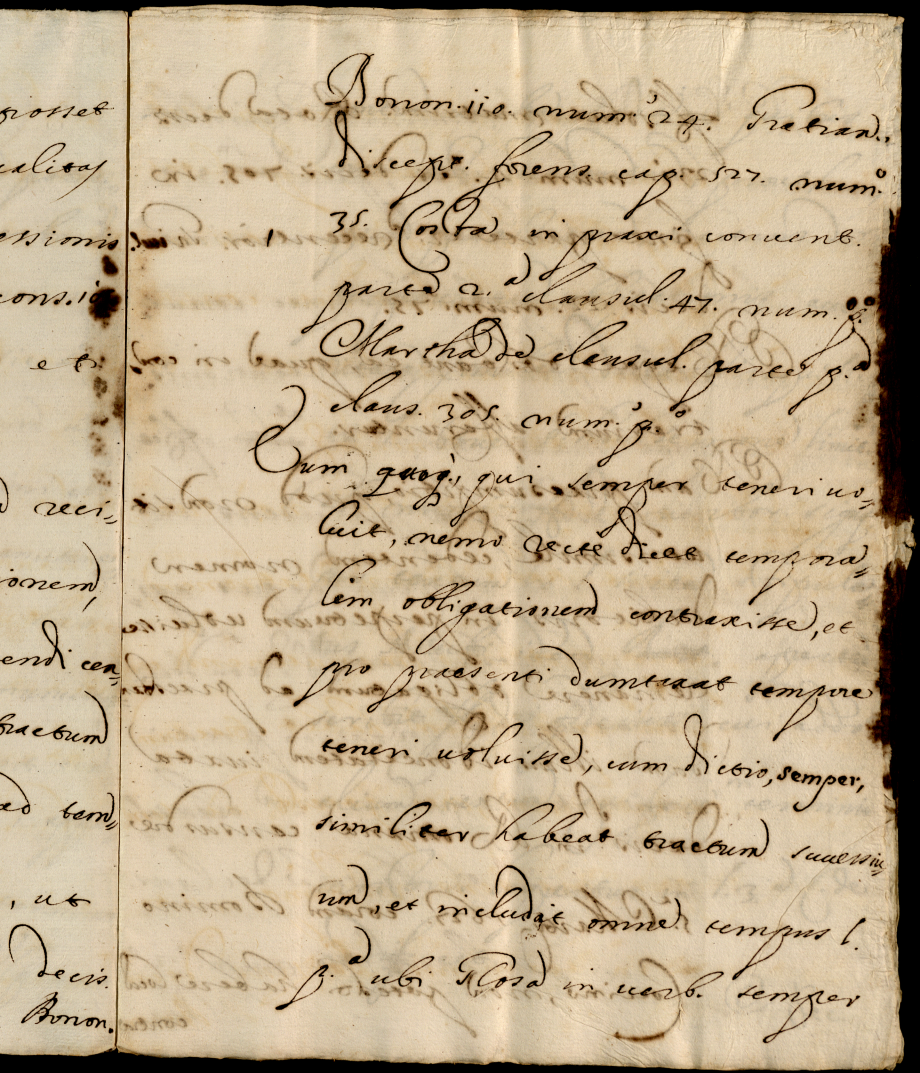 posset
ualitas
essionis
cons. 10
et
reci=
ionem,
endi cen=
tractum
ad tem=
, ut
decis.
Bonon.
Bonon. 110. num.º 24. Gratian.
discept. forens. cap. 527. num.º
35. Costa in praxi convent.
parte 2.ª clausul. 47. num. p.º
Martha de clausul. parte p.ª
claus. 305. num.º p.º
Cum quoq;, qui semper teneri uo=
luit, nemo recte dicet tempora=
lem obligationem contraxisse, et
pro praesenti dumtaxat tempore
teneri uoluisse, cum dictio, semper,
similiter habeat tractum successi=
uum, et includat omne tempus l.
p.ª ubi Glosa in uerb. semper